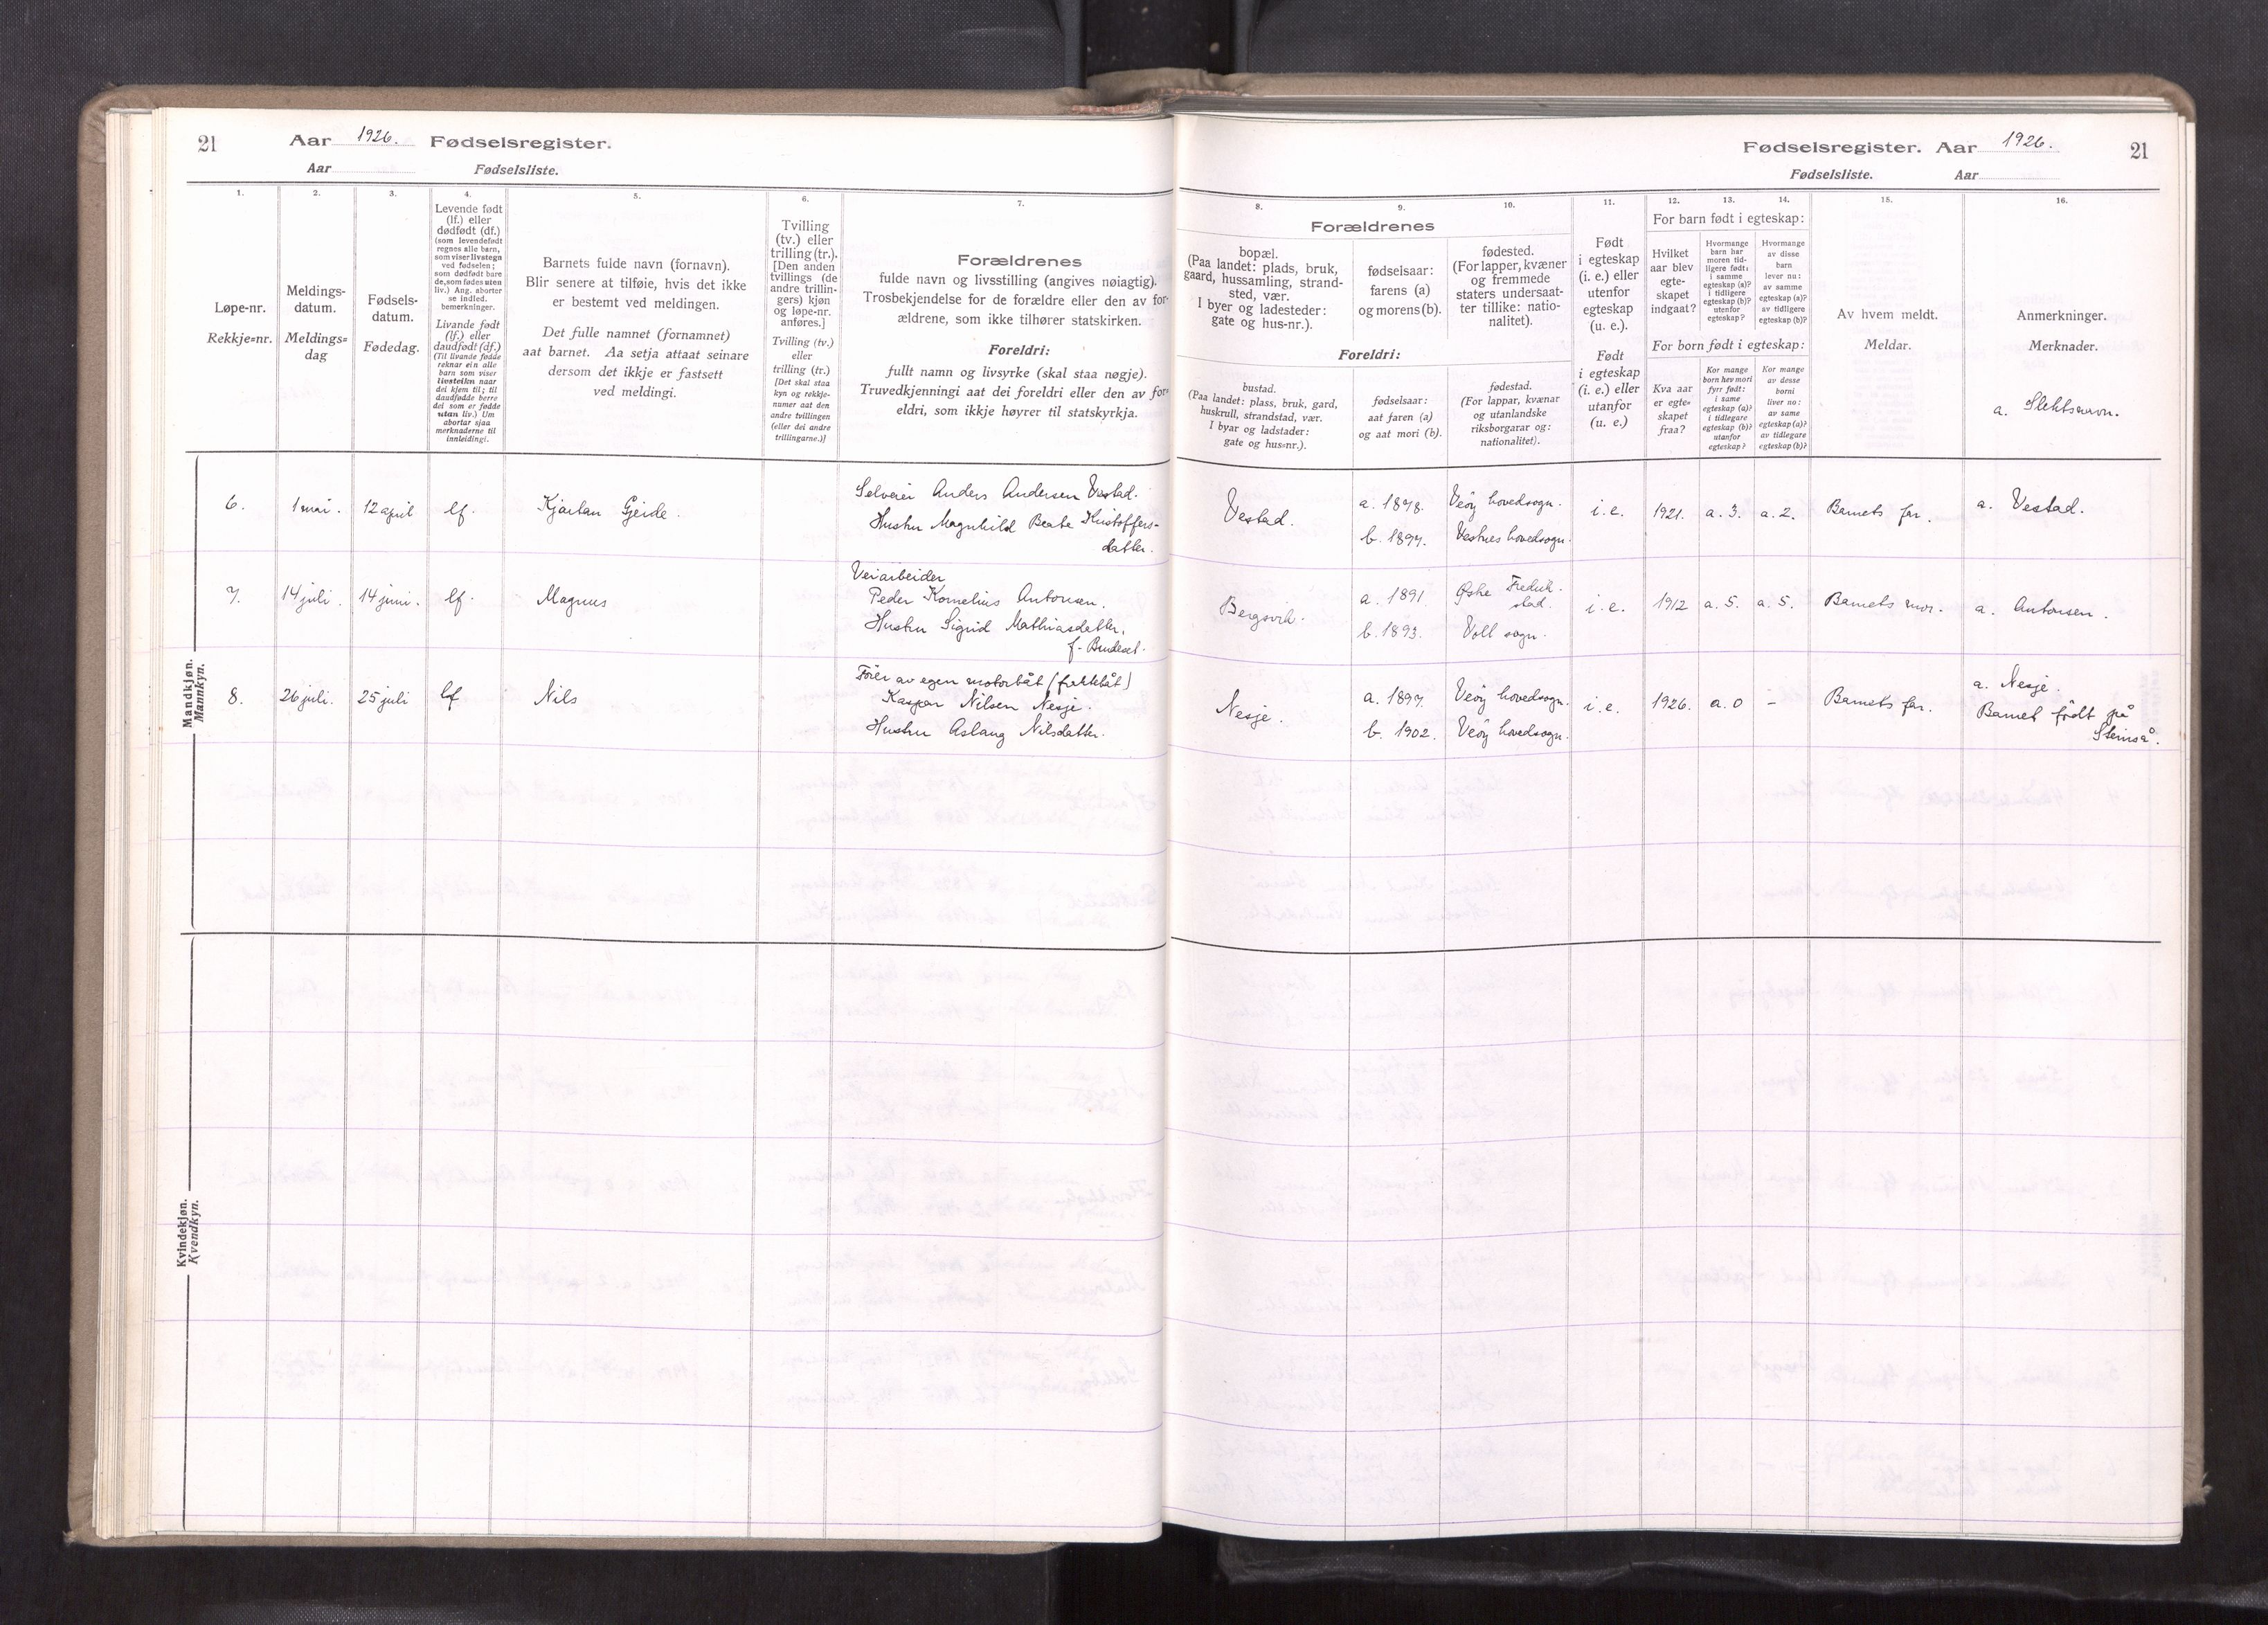 21
Aar 1926. Fødselsregister.
Aar Fødselsliste.
1.
Løpe-nr.
Rekkje=nr.
2.
Meldings-
datum.
Meldings=
dag
3.
Fødsels-
datum.
Fødedag.
4.
Levende født
(lf.) eller
dødfødt (df.)
(som levendefødt
regnes alle barn,
som viser livstegn
ved fødselen;
som dødfødt bare
de, som fødes uten
liv.) Ang. aborter
se indled.
bemerkninger.
Livande født
(lf.) eller
daudfødt (df.)
(Til livande fødde
reknar ein alle
barn som viser
livsteikn naar
dei kjem til; til
daudfødde berre
dei som er fødde
utan liv.) Um
abortar sjaa
merknaderne til
innleidingi.
5.
Barnets fulde navn (fornavn).
Blir senere at tilføie, hvis det ikke
er bestemt ved meldingen.
Det fulle namnet (fornamnet)
aat barnet. Aa setja attaat seinare
dersom det ikkje er fastsett
ved meldingi.
6.
Tvilling
(tv.) eller
trilling (tr.).
[Den anden
tvillings (de
andre trillin-
gers) kjøn
og løpe-nr.
anføres.]
Tvilling (tv.)
eller
trilling (tr.)
[Det skal staa
kyn og rekkje-
numer aat den
andre tvillingen
(eller dei andre
trillingarne.)]
7.
Forældrenes
fulde navn og livsstilling (angives nøiagtig).
Trosbekjendelse for de forældre eller den av for-
ældrene, som ikke tilhører statskirken.
Foreldri:
fullt namn og livsyrke (skal staa nøgje).
Truvedkjenningi aat dei foreldri eller den av for-
eldri, som ikkje høyrer til statskyrkja.
Mandkjøn.
Mannkyn.
6.
1 mai.
12 april
lf.
Kjartan Gjerde.
Selveier Anders Andersen Vestad.
Hustru Magnhild Beate Kristoffers-
datter.
7.
14 juli.
14 juni.
lf.
Magnus
Veiarbeider
Peder Kornelius Antonsen.
Hustru Sigrid Mathiasdatter,
8.
26 juli.
25 juli
lf
Nils
Fører av egen motorbåt (fraktbåt)
Kaspar Nilsen Nesje.
Hustru Aslaug Nilsdatter.
Kvindekjøn.
Kvendkyn.
Fødselsregister. Aar 1926.
21
Fødselsliste. Aar
8.
Forældrenes
bopæl.
(Paa landet: plads, bruk,
gaard, hussamling, strand-
sted, vær.
I byer og ladesteder:
gate og hus-nr.).
9.
fødselsaar:
farens (a)
og morens (b).
10.
fødested.
(For lapper, kvæner
og fremmede
staters undersaat-
ter tillike: natio-
nalitet).
Foreldri:
bustad.
(Paa landet: plass, bruk, gard,
huskrull, strandstad, vær.
I byar og ladstader:
gate og hus=nr.).
fødselsaar:
aat faren (a)
og aat mori (b).
fødestad.
(For lappar, kvænar
og utanlandske
riksborgarar og:
nationalitet).
11.
Født
i egteskap
(i. e.) eller
utenfor
egteskap
(u. e.).
Født
i egteskap
(i. e.) eller
utanfor
(u. e.)
12.
13.
14.
For barn født i egteskap:
Hvilket
aar blev
egte-
skapet
indgaat?
Hvormange
barn har
moren tid-
ligere født:
i samme
egteskap (a)?
i tidligere
egteskap (b)?
utenfor
egteskap?
Hvormange
av disse
barn
lever nu:
av samme
egteskap (a)?
av tidligere
egteskap (b)?
For born født i egteskap:
Kva aar
er egte=
skapet
fraa?
Kor mange
born hev mori
fyrr født:
i same
egteskap (a)?
i tidlegare
egteskap (b)?
utanfor
egteskap?
Kor mange
av desse
borni
liver no:
av same
egteskap (a)?
av tidlegare
egteskap (b)?
15.
Av hvem meldt.
Meldar.
16.
Anmerkninger.
Merknader.
a. Slektsnavn.
Vestad.
a. 1878.
b. 1897.
Veøy hovedsogn.
Vestnes hovedsogn.
i. e.
1921.
a. 3.
a. 2.
Barnets far.
a. Vestad.
Bergsvik.
a. 1891
b. 1893.
Fredrik-
stad.
Voll sogn.
i. e.
1912
a. 5.
a. 5.
Barnets mor.
a. Antonsen.
Nesje.
a. 1897.
b. 1902.
Veøy hovedsogn.
Veøy hovedsogn.
i. e.
1926.
a. 0
-
Barnets far.
a. Nesje.
Barnet født på